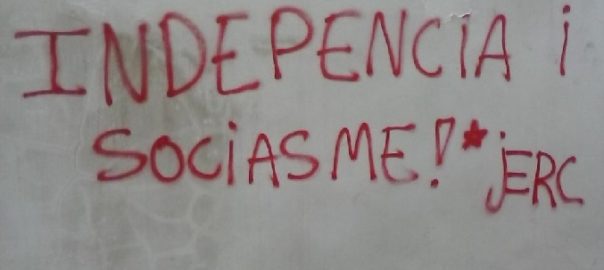 INDEPENCIA i
SOCiASME!* jERC